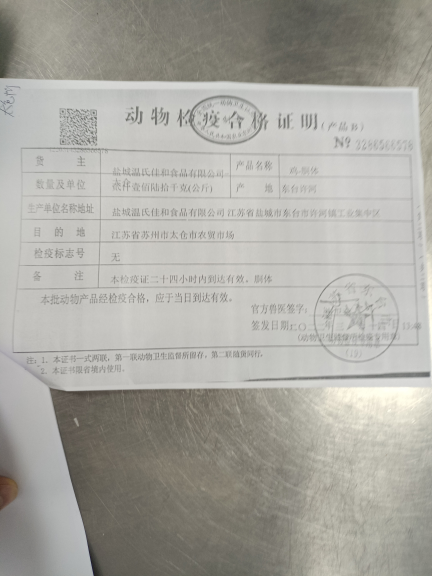 动物检疫合格证明(产品B)
№ 3286566578
货 主 盐城温氏佳和食品有限公司 产品名称 鸡-胴体
数量及单位 壹佰陆拾千克(公斤) 产 地 东台许河
生产单位名称地址 盐城温氏佳和食品有限公司 江苏省盐城市东台市许河镇工业集中区
目 的 地 江苏省苏州市太仓市农贸市场
检疫标志号 无
备 注 本检疫证二十四小时内到达有效、胴体
本批动物产品经检疫合格，应于当日到达有效。
官方兽医签字：
签发日期：二〇二二年三月
(动物卫生监督所检疫专用章)
注：1、本证书一式两联，第一联动物卫生监督所留存，第二联随货同行。
2、本证书限省境内使用。